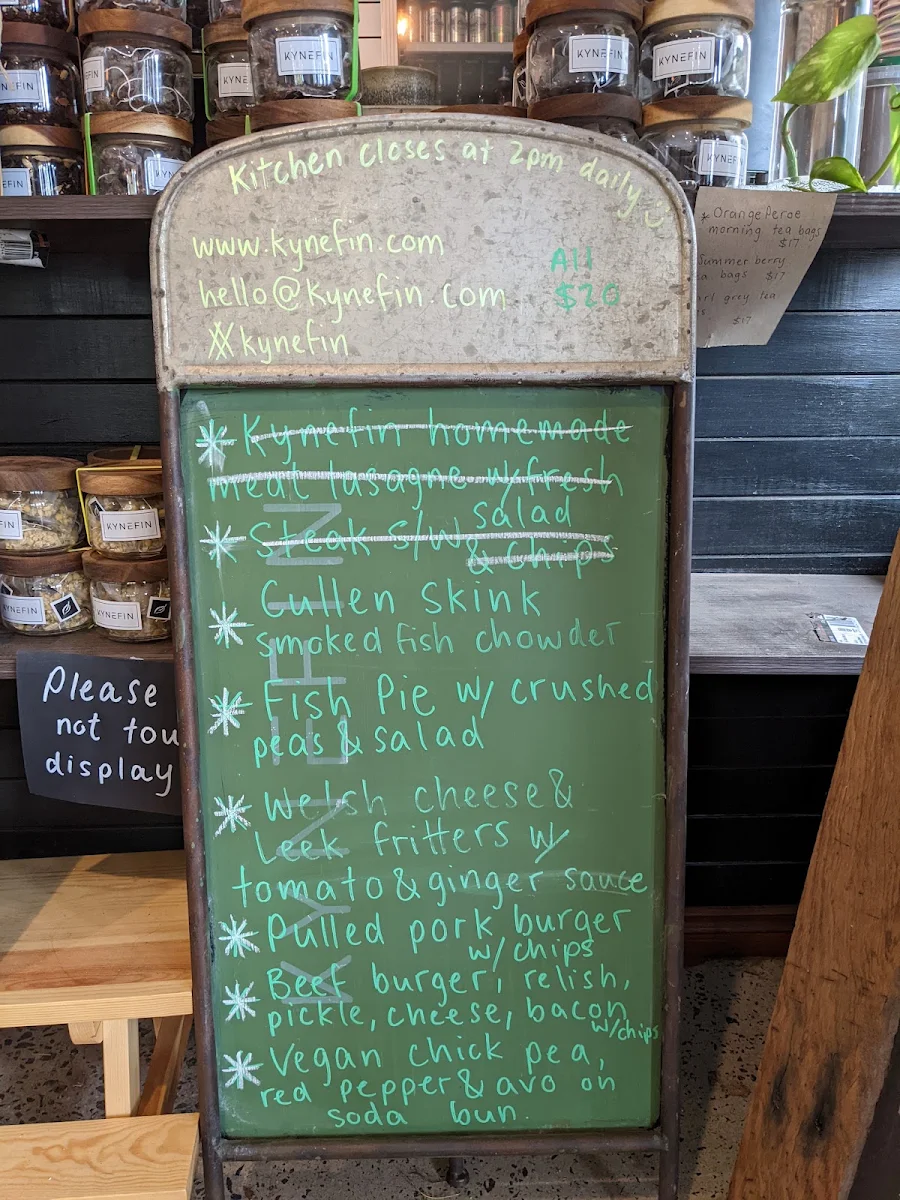 KYNEFIN
KYNEFIN
KYNEFIN
KYNEFIN
Kitchen closes at 2pm daily
www.kynefin.com
hello@kynefin.com
kynefin
All
$20
* Orange Peroe
morning tea bags
$17
Summer berry
bags $17
grey tea
$17
* Kynefin homemade
meat lasagne w/fresh
salad
* Steak s/w & chips
* Cullen Skink
smoked fish chowder
* Fish Pie w/ crushed
peas & salad
* Welsh cheese &
Leek fritters w/
tomato & ginger sauce
* Pulled pork burger
w/chips
* Beef burger, relish,
pickle, cheese, bacon
w/chips
* Vegan chick pea,
red pepper & avo on
soda bun.
KYNEFIN
KYNEFIN
KYNEFIN
KYNEFIN
Please
not tou
display